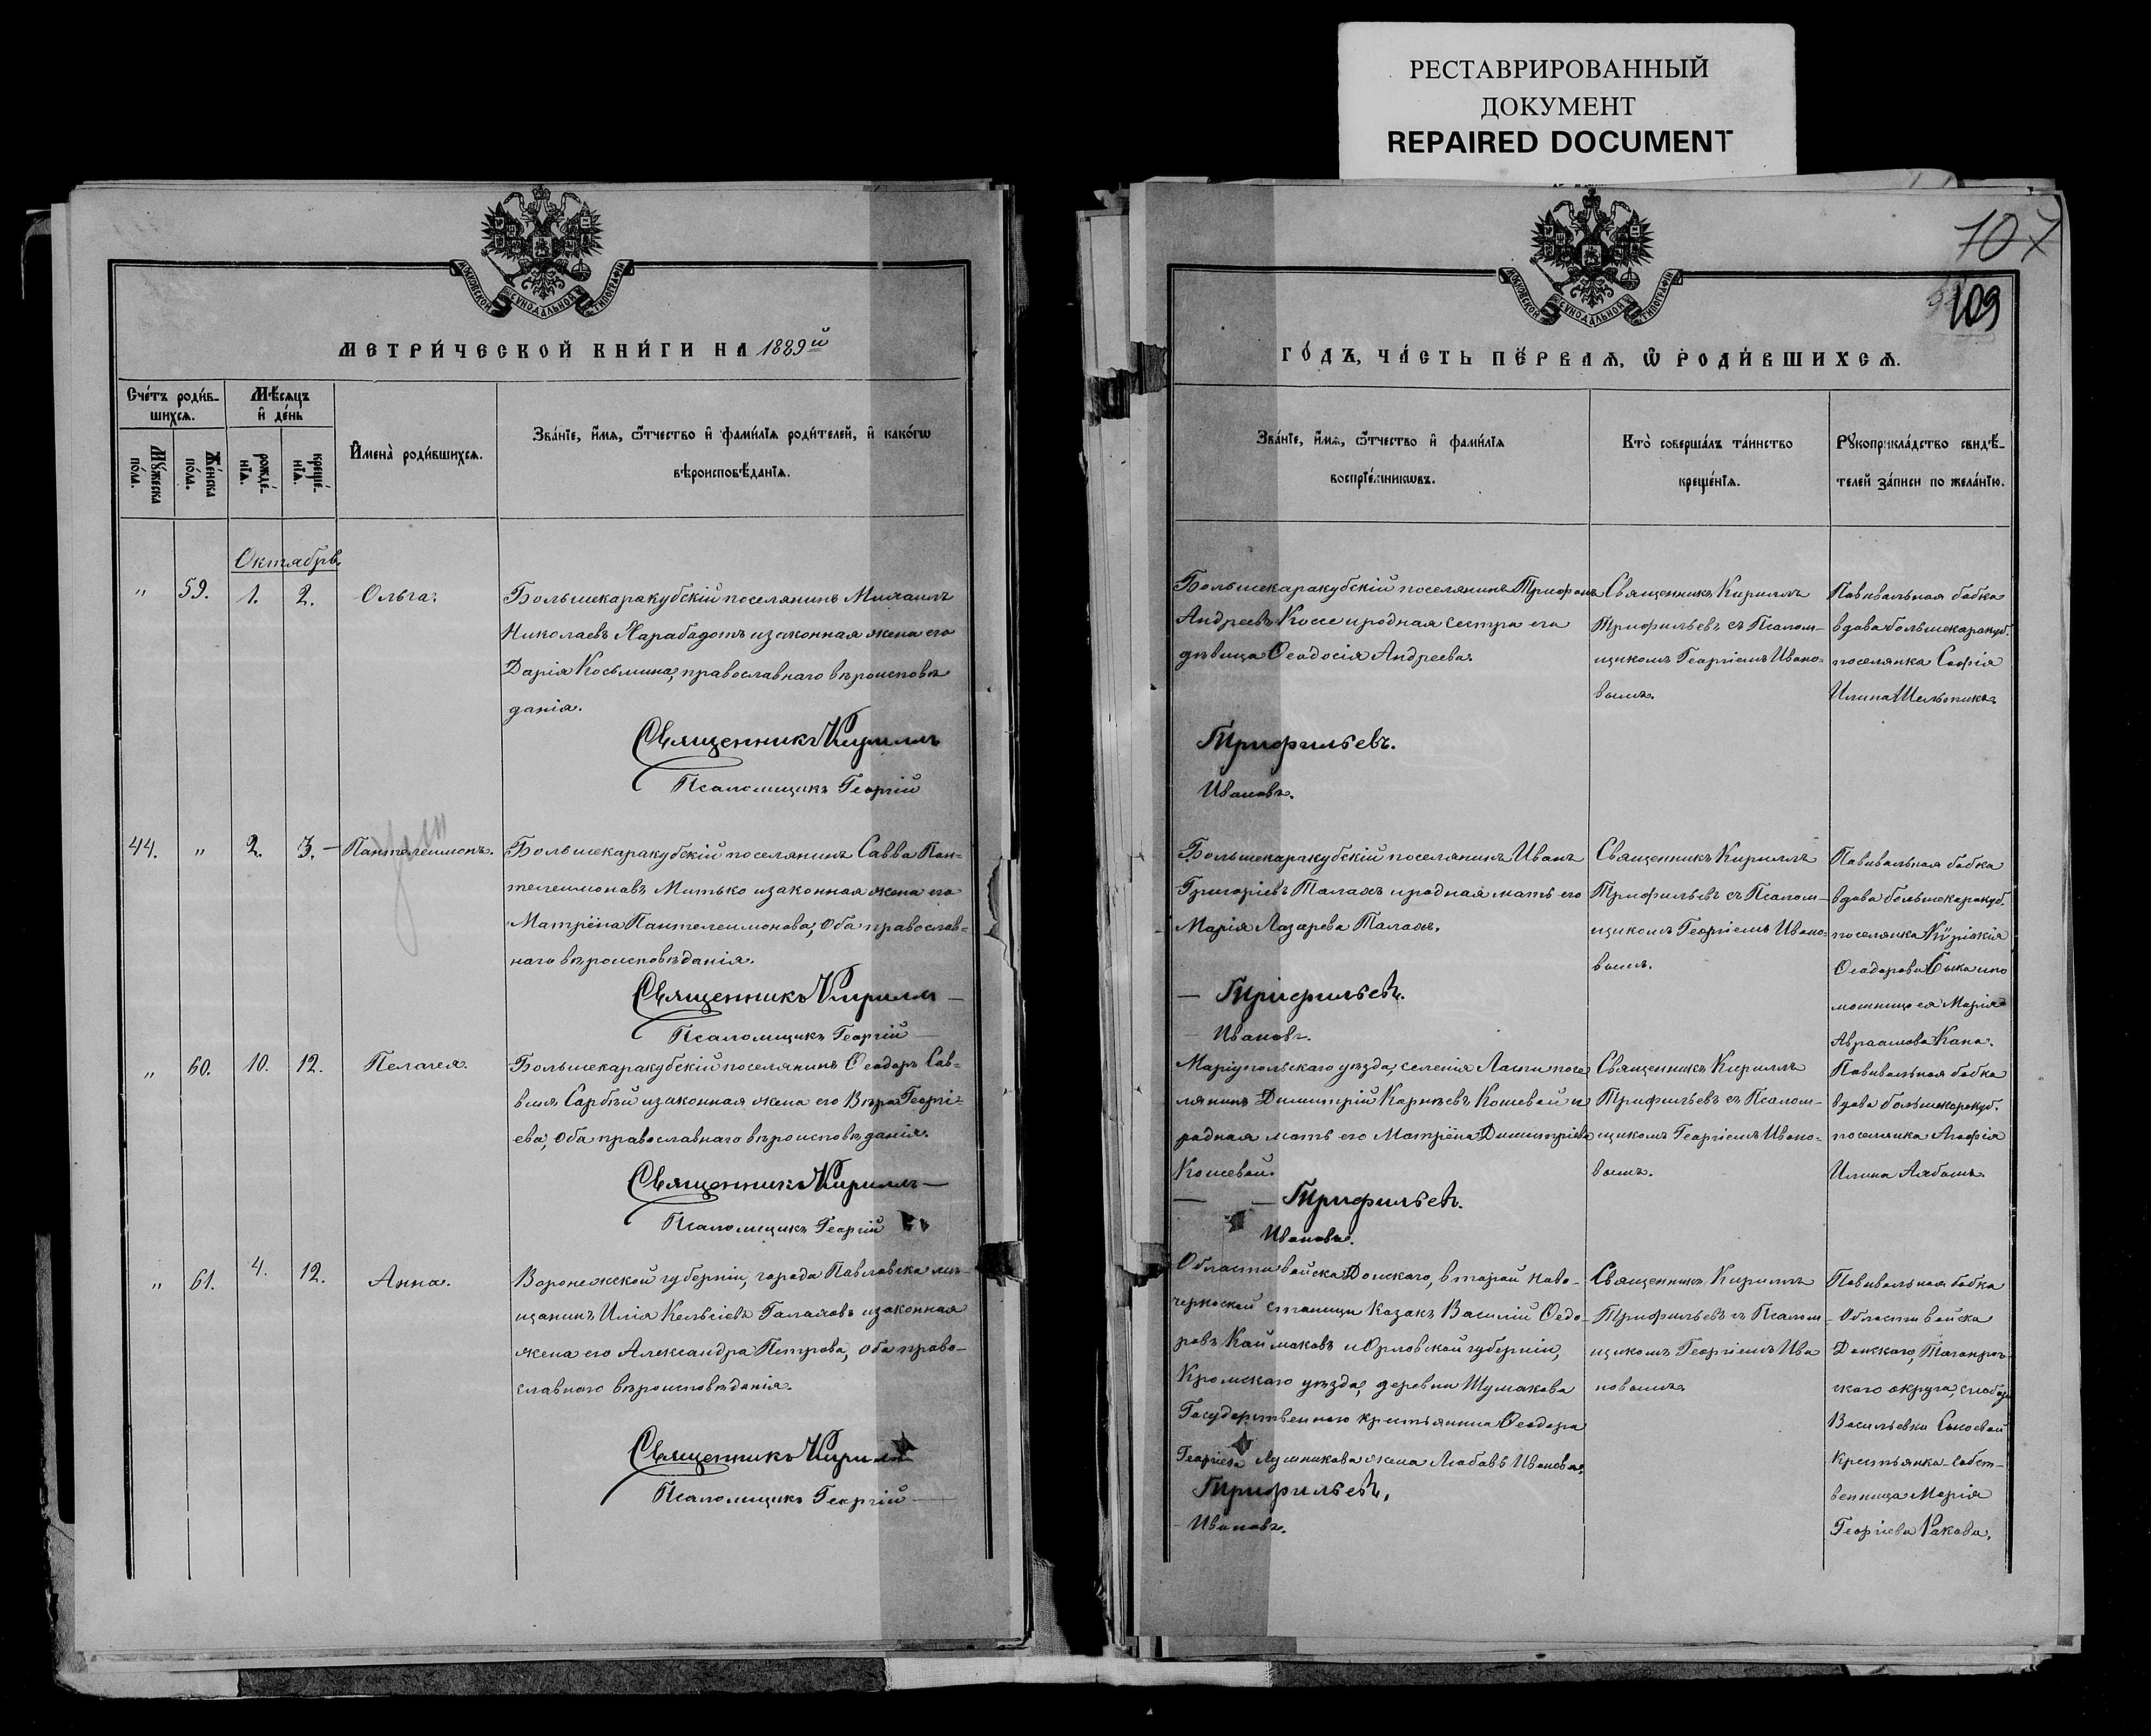 РЕСТАВРИРОВАННЫЙ
ДОКУМЕНТ
REPAIRED DOCUMENT
МОСКОВСКОЙ СѴНОДАЛЬНОЙ ТИПОГРАФІИ
МЕТРИ́ЧЕСКОЙ КНИ́ГИ НА 1889й
Сче́тъ роди́в-
шихсѧ.
Мѣ́сѧцъ
и҆ де́нь
Мꙋ́жеска
по́ла.
Же́нска
по́ла.
рожде́-
нїѧ.
креще́-
нїѧ.
И҆мена̀ роди́вшихсѧ.
Зва́нїе, и҆́мѧ, ѻ҆́тчество и҆ фами́лїѧ роди́телей, и҆ како́гѡ
вѣроисповѣ́данїѧ.
Октябрь
" 59. 1. 2. Ольга.
Большекаракубскій поселянинъ Михаилъ
Николаевъ Харабадотъ и законная жена его
Дарія Косьмина, православнаго вѣроисповѣ
данія.
Священникъ Кириллъ
Псаломщикъ Георгій
44. " 2. 3. — Пантелеимонъ.
Большекаракубскій поселянинъ Савва Пан=
телеимоновъ Митько и законная жена его
Матрёна Пантелеимонова, оба православ=
наго вѣроисповѣданія.
Священникъ Кириллъ —
Псаломщикъ Георгій —
" 60. 10. 12. Пелагея.
Большекаракубскій поселянинъ Ѳеодоръ Сав=
винъ Сарбѣй и законная жена его Вѣра Георгі=
ева, оба православнаго вѣроисповѣданія.
Священникъ Кириллъ —
Псаломщикъ Георгій
" 61. 4. 12. Анна.
Воронежской губерніи, города Павловска мѣ-
щанинъ Илія Кельсіевъ Галаховъ и законная
жена его Александра Петрова, оба право-
славнаго вѣроисповѣданія.
Священникъ Кириллъ
Псаломщикъ Георгій —
107
МОСКОВСКОЙ СѴНОДАЛЬНОЙ ТИПОГРАФІИ
109
ГО́ДЪ, ЧА́СТЬ ПЕ́РВАѦ, Ѡ҆ РОДИ́ВШИХСѦ.
Зва́нїе, и҆́мѧ, ѻ҆́тчество и҆ фами́лїѧ
воспрїе́мникѡвъ.
Кто̀ соверша́лъ та́инство
креще́нїѧ.
Рꙋкоприкла́дство свидѣ́-
телей за́писи по жела́нїю.
Большекаракубскій поселянинъ Трифонъ
Андреевъ Коссе и родная сестра его
дѣвица Ѳеодосія Андреева.
Священникъ Кириллъ
Трифильевъ съ Псалом-
щикомъ Георгіемъ Ивано=
вымъ.
Повивальная бабка
вдова большекаракуб.
поселянка Софія
Ильина Мельникъ.
Трифильевъ.
Ивановъ.
Большекаракубскій поселянинъ Иванъ
Григоріевъ Талахъ и родная мать его
Марія Лазарева Талахъ.
Священникъ Кириллъ
Трифильевъ съ Псалом-
щикомъ Георгіемъ Ивано=
вымъ.
Повивальная бабка
вдова большекаракуб.
поселянка Кѵріакія
Ѳеодорова Быка и по
мощница ея Марія
Авраамова Кана.
— Трифильевъ.
— Ивановъ.
Маріупольскаго уѣзда, селенія Ласпи посе
лянинъ Димитрій Карнѣевъ Кошевой и
родная мать его Матрёна Димитріева
Кошевой.
Священникъ Кириллъ
Трифильевъ съ Псалом-
щикомъ Георгіемъ Ивано=
вымъ.
Повивальная бабка
вдова большекаракуб.
поселянка Агафія
Ильина Лябахъ.
— — Трифильевъ.
Ивановъ.
Области войска Донскаго, второй Ново-
черкаской станицы казакъ Василій Ѳедо-
ровъ Каймаковъ и Орловской губерніи,
Кромскаго уѣзда, деревни Шумакова
Государственнаго крестьянина Ѳеодора
Георгіева Лушникова жена Любовь Иванова.
Священникъ Кириллъ
Трифильевъ съ Псалом
щикомъ Георгіемъ Ива
новымъ.
Повивальная бабка
Области войска
Донскаго, Таганрог-
скаго округа, слободы
Васильевки
Крестьянка-собст-
венница Марія
Георгіева Ракова.
Трифильевъ,
— Ивановъ.